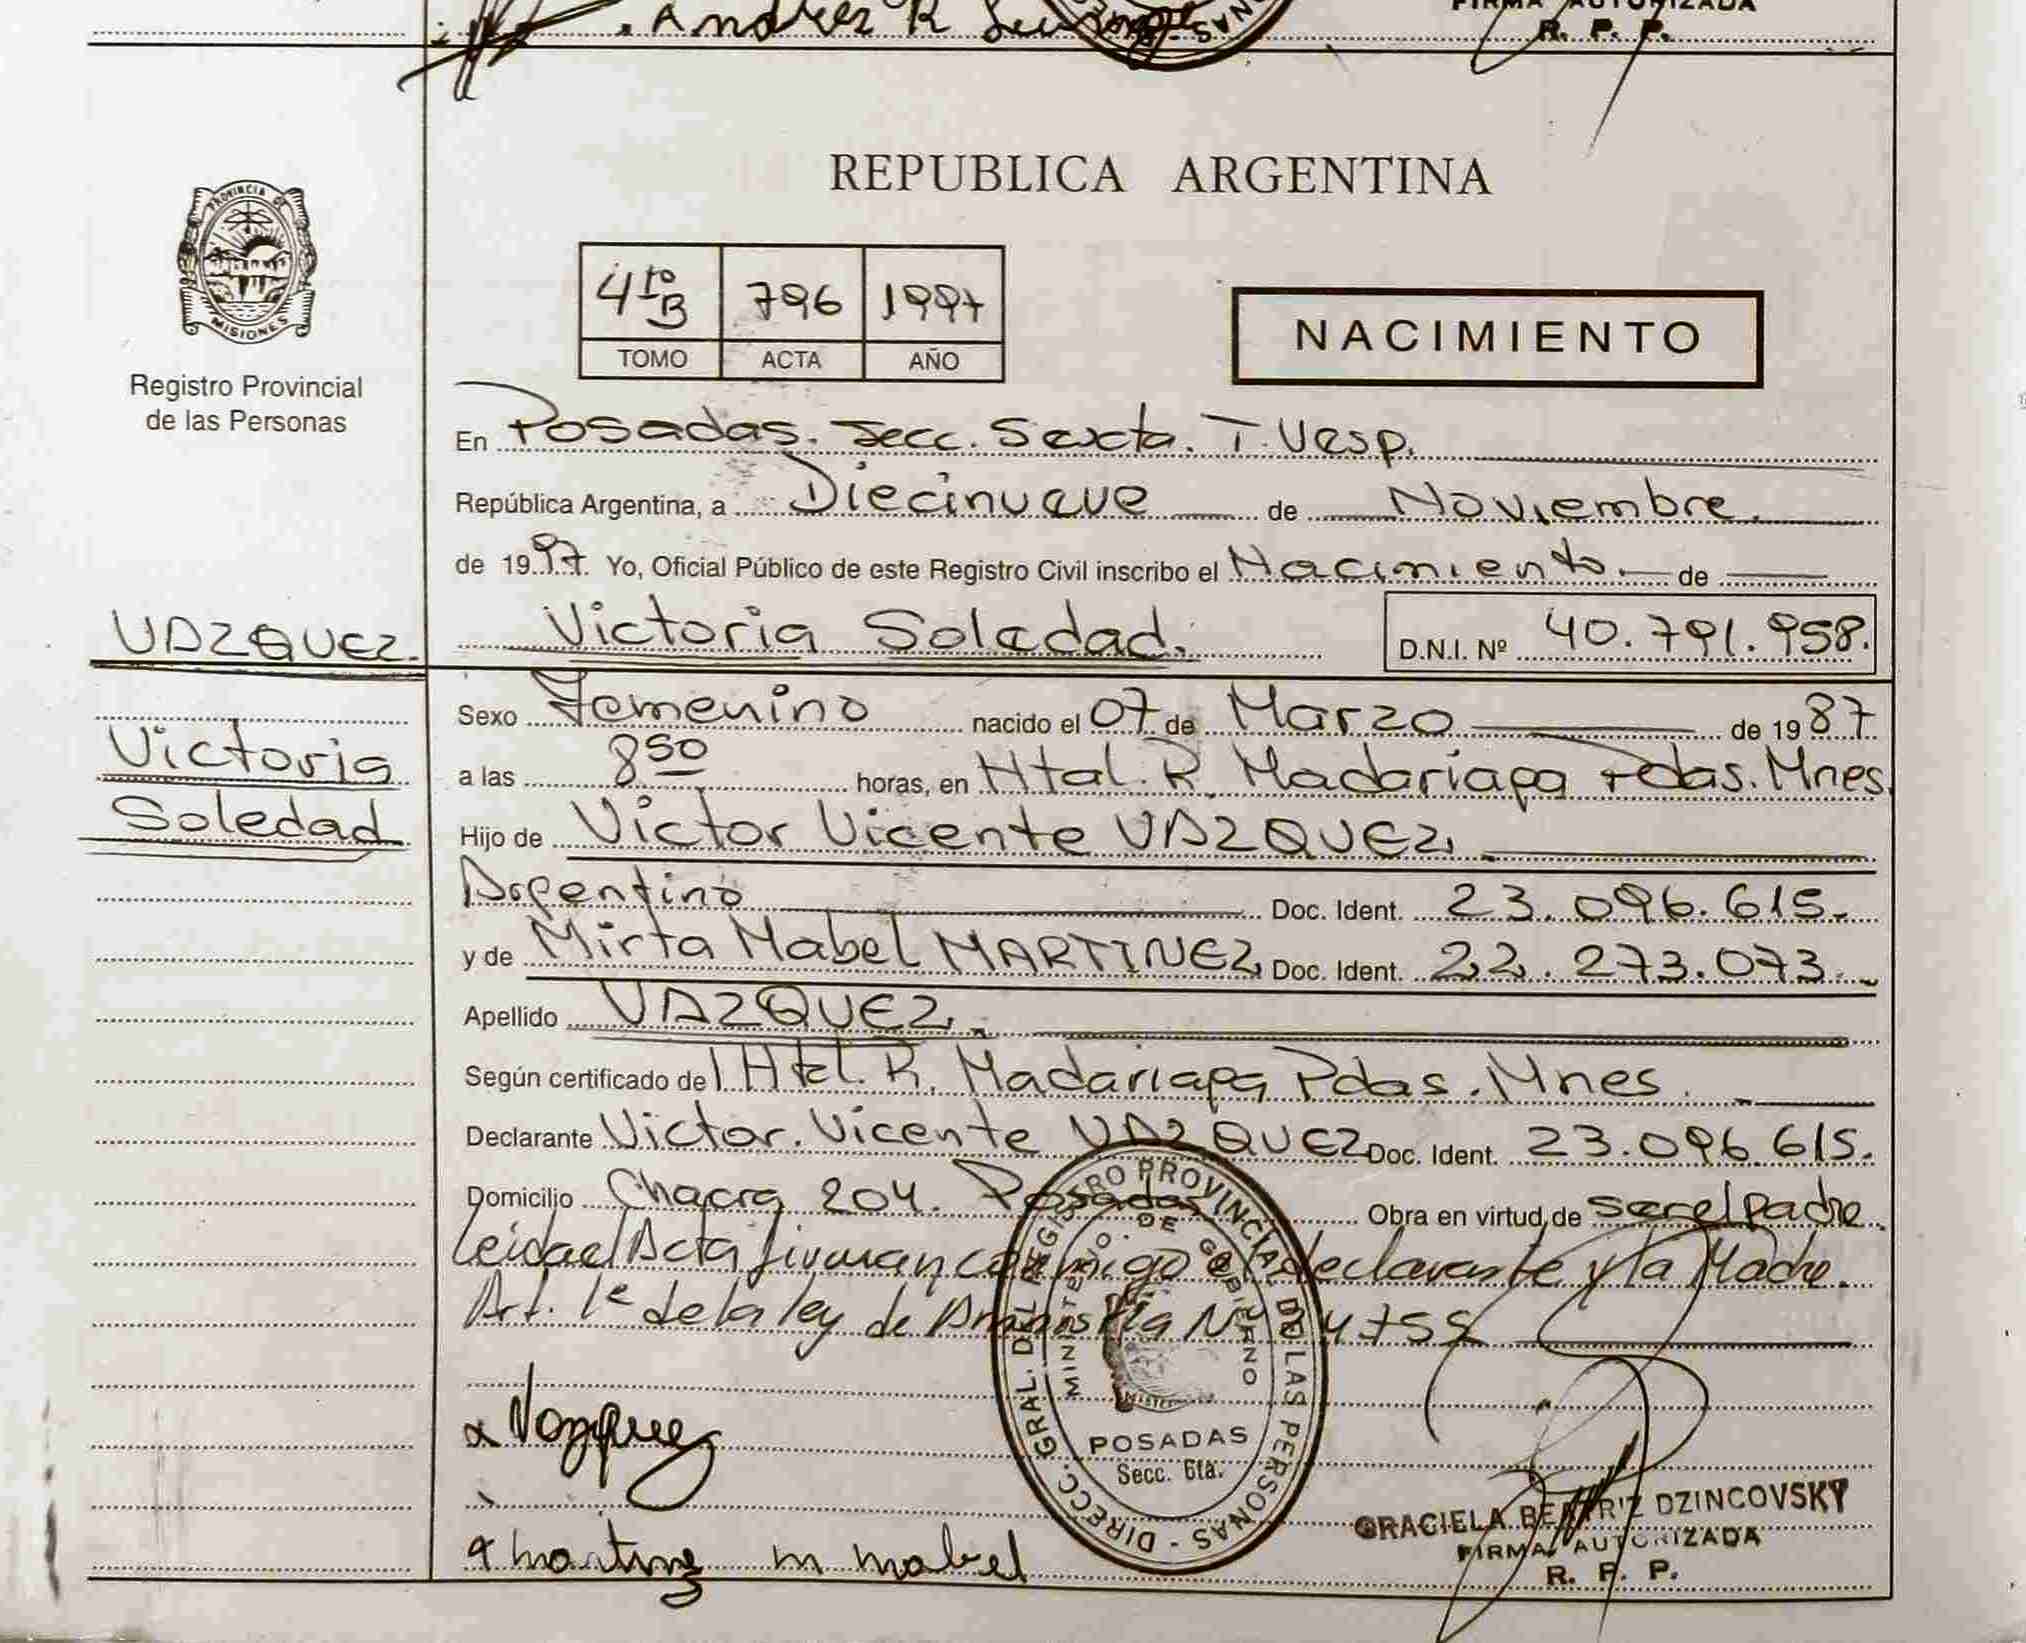 Andrés R
FIRMA AUTORIZADA
R. P. P.
PROVINCIA DE
MISIONES
Registro Provincial
de las Personas
REPUBLICA ARGENTINA
4to B 796 1997
TOMO ACTA AÑO
NACIMIENTO
En Posadas. Secc. Sexta. T. Vesp.
República Argentina, a Diecinueve de Noviembre
de 1997. Yo, Oficial Público de este Registro Civil inscribo el Nacimiento de
Victoria Soledad. D.N.I. Nº 40.791.958.
VAZQUEZ
Victoria
Soledad
Sexo Femenino nacido el 07 de Marzo de 1987
a las 8 50 horas, en Htal. R. Madariaga Pdas. Mnes.
Hijo de Victor Vicente VAZQUEZ
Argentino Doc. Ident. 23.096.615.
y de Mirta Mabel MARTINEZ Doc. Ident. 22.273.073.
Apellido VAZQUEZ
Según certificado del Htal. R. Madariaga Pdas. Mnes.
Declarante Victor Vicente VAZQUEZ Doc. Ident. 23.096.615.
Domicilio Chacra 204. Posadas Obra en virtud de ser el padre
Leida el Acta firman conmigo el declarante y la Madre.
Art. 1º de la ley de Amnistia Nº 24755
DIRECC. GRAL. DEL REGISTRO PROVINCIAL DE LAS PERSONAS
MINISTERIO DE GOBIERNO
POSADAS
Secc. 6ta.
x Vazquez
x Martinez M Mabel
GRACIELA BEATRIZ DZINCOVSKY
FIRMA AUTORIZADA
R. P. P.